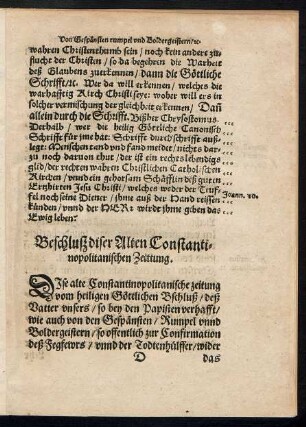 Von Gespänsten rumpel vnd Boldergeistern/ꝛc
wahren Christenthumb sein / noch kein andere zu-
flucht der Christen / so da begehren die Warheit
deß Glaubens zuerkennen / dann die Göttliche
Schrifft/ꝛc. Wer da will erkennen / welches die
warhafftig Kirch Christi seye: woher will ers in
solcher vermischung der gleichheit erkennen / Dañ
allein durch die Schrifft. Bißher Chrysostomus.
Derhalb / wer die heilig Göttliche Canonisch
Schrifft für jme hat: Schrifft durch schrifft auß-
legt: Menschen tand vnd fand meidet / nichts dar-
zu noch daruon thut / der ist ein rechts lebendigs
glid / der rechten wahren Christlichen Catholischen
Kirchen / vnnd ein gehorsam Schäfflin deß guten
Ertzhirten Jesu Christi / welches weder der Teuf-
fel noch seine Diener / jhme auß der Hand reissen
Joann. 10.
künden / vnnd der HERR wirdt jhme geben das
Ewig leben.
Beschluß diser Alten Constanti-
nopolitanischen Zeitung.
Dise alte Constantinopolitanische zeitung
vom heiligen Göttlichen Bschluß / deß
Vatter vnsers / so bey den Papisten verhafft/
wie auch von den Gespänsten / Rumpel vnnd
Boldergeistern / so offentlich zur Confirmation
deß Fegfewrs / vnnd der Todtenhülffer / wider
D
das